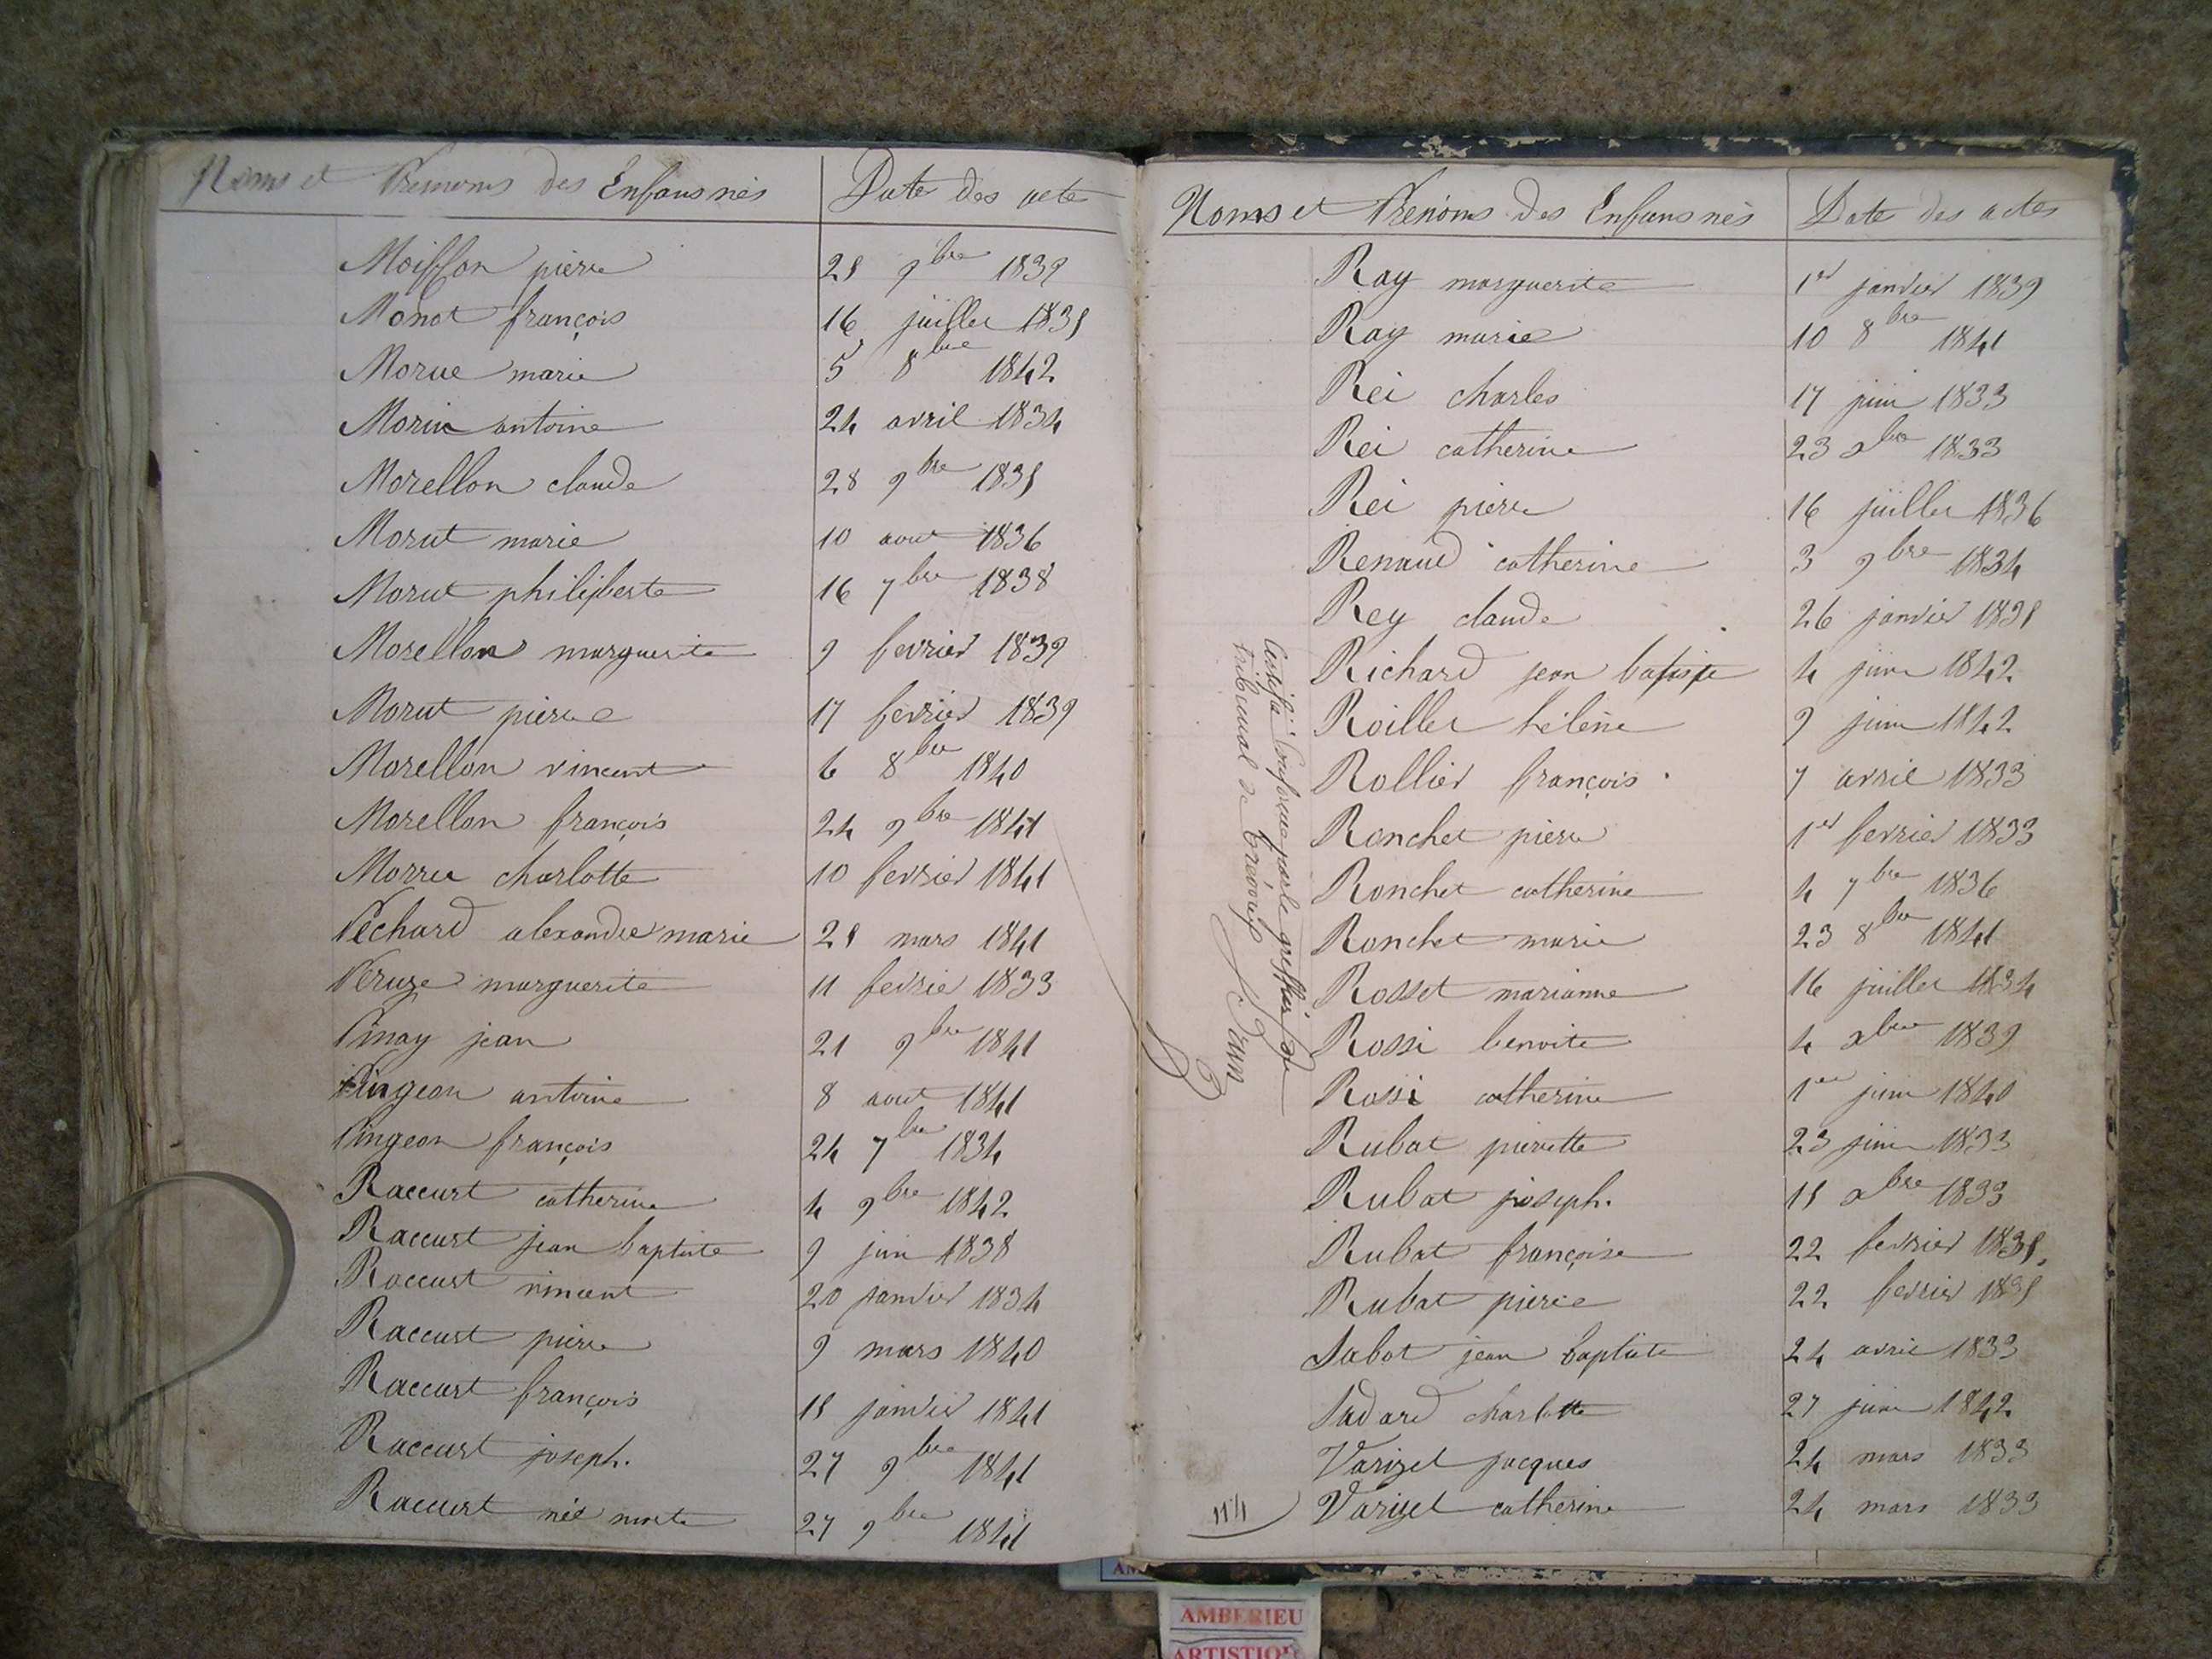 Noms et Prenoms des Enfans nés | Date des acte
Moisson pierre 25 9bre 1839
Monot françois 16 juillet 1835
Morue marie 5 8bre 1842
Morin antoine 24 avril 1834
Morellon claude 28 9bre 1835
Morut marie 10 aout 1836
Morut philiberte 16 7bre 1838
Morellon marguerite 9 fevrier 1839
Morut pierre 17 fevrier 1839
Morellon vincent 6 8bre 1840
Morellon françois 24 9bre 1841
Morru charlotte 10 fevrier 1841
Péchard alexandre marie 25 mars 1841
Peruze marguerite 11 fevrier 1833
Pinay jean 21 9bre 1841
Pingeon antoine 8 aout 1841
Pingeon françois 24 7bre 1834
Raccurt catherine 4 9bre 1842
Raccurt jean baptiste 9 juin 1838
Raccurt vincent 20 janvier 1834
Raccurt pierre 9 mars 1840
Raccurt françois 15 janvier 1841
Raccurt joseph. 27 9bre 1841
Raccurt née morte 27 9bre 1841
Noms et Prenoms des Enfans nés | Date des actes
Ray marguerite 1er janvier 1839
Ray marie 10 8bre 1841
Rei charles 17 juin 1833
Rei catherine 23 xbre 1833
Rei pierre 16 juillet 1836
Renaud catherine 3 9bre 1834
Rey claude 26 janvier 1835
Richard jean batiste 4 juin 1842
Roillet hélène 9 juin 1842
Rollier françois 7 avril 1833
Ronchet pierre 1er fevrier 1833
Ronchet catherine 4 7bre 1836
Ronchet marie 23 8bre 1841
Rosset marianne 16 juillet 1834
Rossi benoite 4 xbre 1839
Rossi catherine 1er juin 1840
Rubat pierrette 23 juin 1833
Rubat joseph. 15 xbre 1833
Rubat françoise 22 fevrier 1835.
Rubat pierre 22 fevrier 1835
Sabot jean baptiste 24 avril 1833
Sadard charlotte 27 juin 1842
Varizet jacques 24 mars 1833
Varizet catherine 24 mars 1833
Certifié Conforme par le greffier du
tribunal de trévoux
114
AMBERIEU
ARTISTIQUE